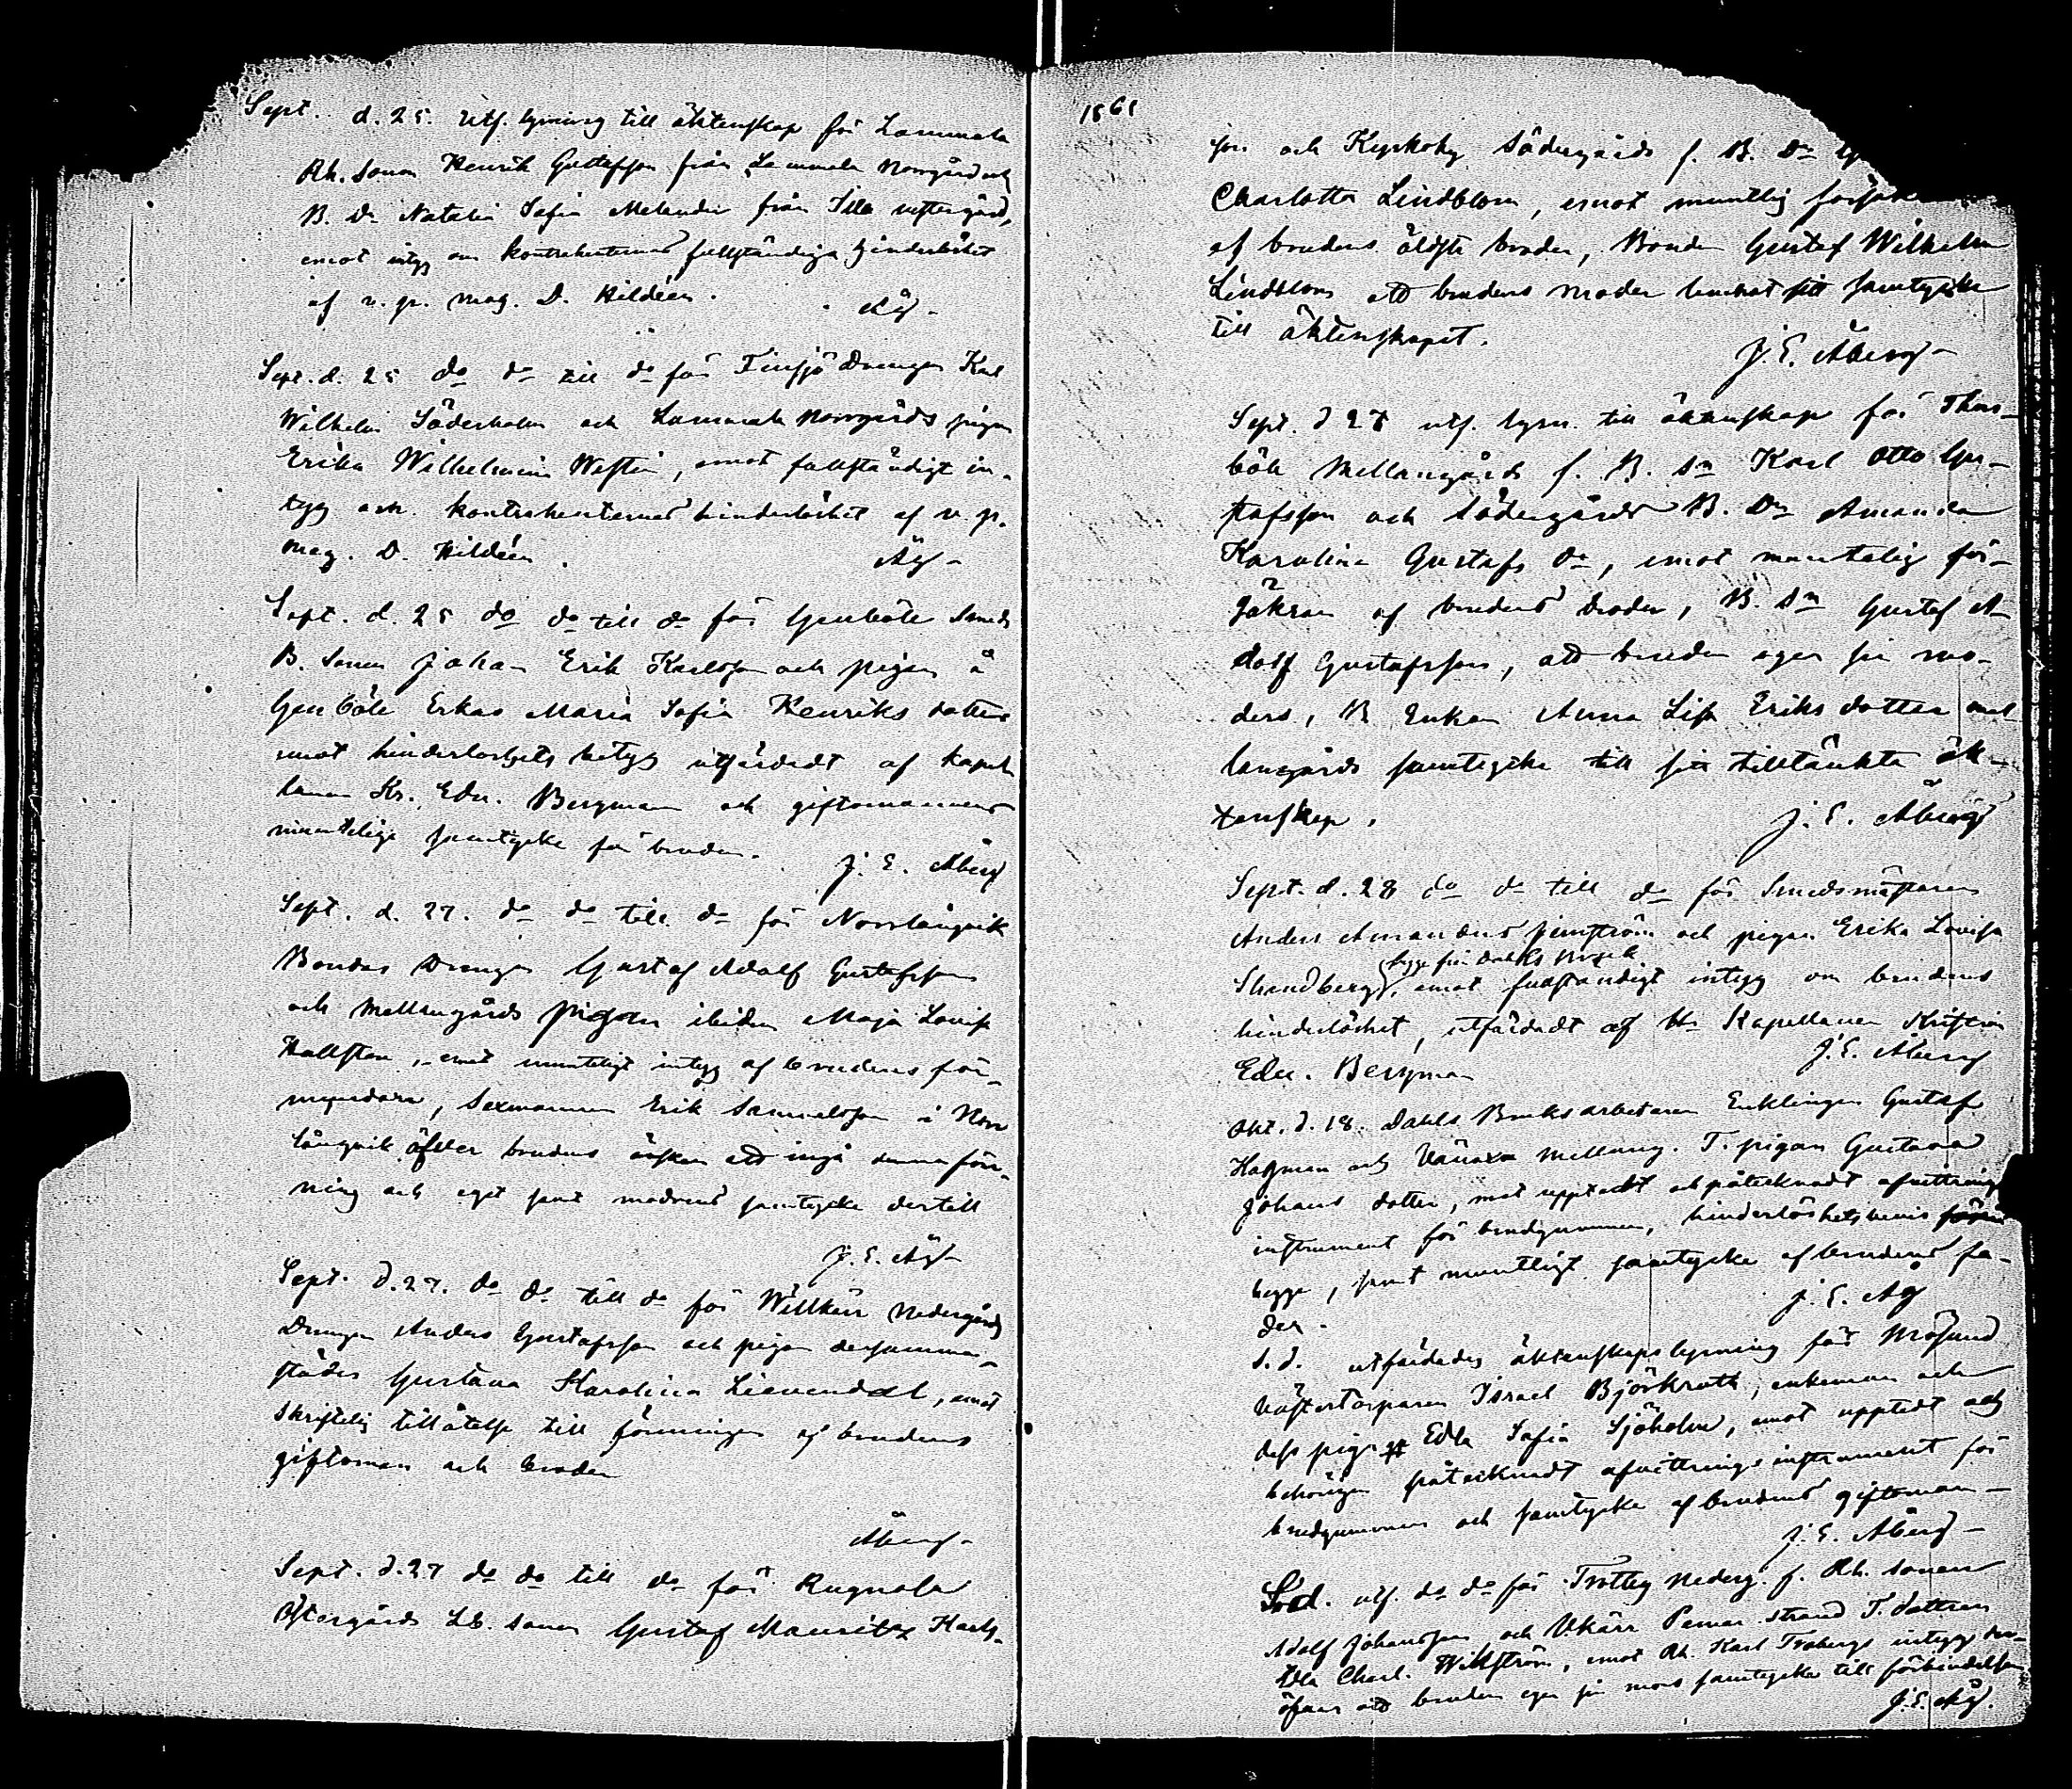 Sept. d. 25. Utf. lysning till äktenskap för Lammala
Rh. sonen Henrik Gustafsson från Lammala Norrgård och
B. Dr Natalia Sofia Melander från Illo vestergård,
emot intyg om kontrahenternas fullständiga hinderlöshet
af v. p. mag. D. Hildéen.
Åg
Sept. d. 25 do do till do för Finsjö Drengen Karl
Wilhelm Söderholm och Lammala Norrgårds pigan
Erika Wilhelmina Westin, emot fullständigt in-
tyg och kontrahenternas hinderlöshet af v. p.
mag. D. Hildéen.
Åg
Sept. d. 25 do do till do för Genböle Smeds
B. Sonen Johan Erik Karlsson och pigan å
Genböle Erkas Maria Sofia Henriks dotter
emot hinderlöshets betyg utfärdadt af kapel-
lanen Kr. Edu. Bergman och giftomannens
muntelige samtycke för bruden.
J. E. Åberg
Sept. d. 27. do do till do för Norrlångvik
Bondas Drengen Gustaf Adolf Gustafsson
och Mellangårds pigan ibidem Maja Lovisa
Hallsten, emot munteligt intyg af brudens för-
myndare, Sexmannen Erik Samuelsson i Norr
långvik öfver brudens önskan att ingå denna före-
ning och eget samt modrens samtycke dertill
J. E. Åg
Sept. d. 27. do do till do för Willkärr Nedergårds
Drengen Anders Gustafsson och pigan dersamma-
städes Gustava Karolina Lievendal, emot
skriftelig tillåtelse till föreningen af brudens
giftoman och broder
Åberg
Sept. d. 27 do do till do för Rugnola
Östergårds Lb. sonen Gustaf Mauritz Karls-
1861
son och Kyrkoby Södergårds f. B. Dr
Charlotta Lindblom, emot muntlig
af brudens äldste broder, Bonden Gustaf Wilhelm
Lindblom att brudens moder lemnat sitt samtycke
till äktenskapet.
J. E. Åberg
Sept. d 27 utf. lysn. till äktenskap för Thors-
böle Mellangårds f. B. Sn Karl Otto Gu-
stafsson och Södergårds B. Dr Amanda
Karolina Gustafs Dr, emot muntelig för-
säkran af brudens broder, B. Sn Gustaf A-
dolf Gustafsson, att bruden eger sin mo-
ders, B. Enkan Anna Lisa Eriks dotter mel-
langårds samtycke till sitt tilltänkta äk-
tenskap.
J. E. Åberg
Sept. d. 28 do do till do för Smedsmästaren
Anders Amandus Jernström och pigan Erika Lovisa
begge från Dahls bruk
Strandberg, emot fullständigt intyg om brudens
hinderlöshet, utfärdadt af Hr Kapellanen Kristian
Edu. Bergman
J. E. Åberg
Okt. d. 18. Dahls Bruksarbetaren Enklingen Gustaf
Hagman och Vänoxa Mellang. T. pigan Gustava
Johans dotter, mot uppteedt och påtecknadt afvittrings
instrument för brudgummen, hinderlöshetsbevis
begge, samt muntligt samtycke af brudens fa-
der.
J. E. Åg
S. d. utfärdades äktenskapslysning för Mosund
Västertorparen Israel Björkroth, enkeman och
dess piga Edla Sofia Sjöholm, emot uppteedt och
behörigen påtecknadt afvittrings instrument för
brudgummen och samtycke af brudens giftoman
J. E. Åberg
S. d. utf. do do för Trotby Nederg. f. Rh. sonen
Adolf Johansson och Ukärr Pamar strand T. dottren
Edla Charl. Willström, emot Rh. Karl Trobergs intyg der-
öfver att bruden eger sin mors samtycke till förbindelsen
J. E. Åg.